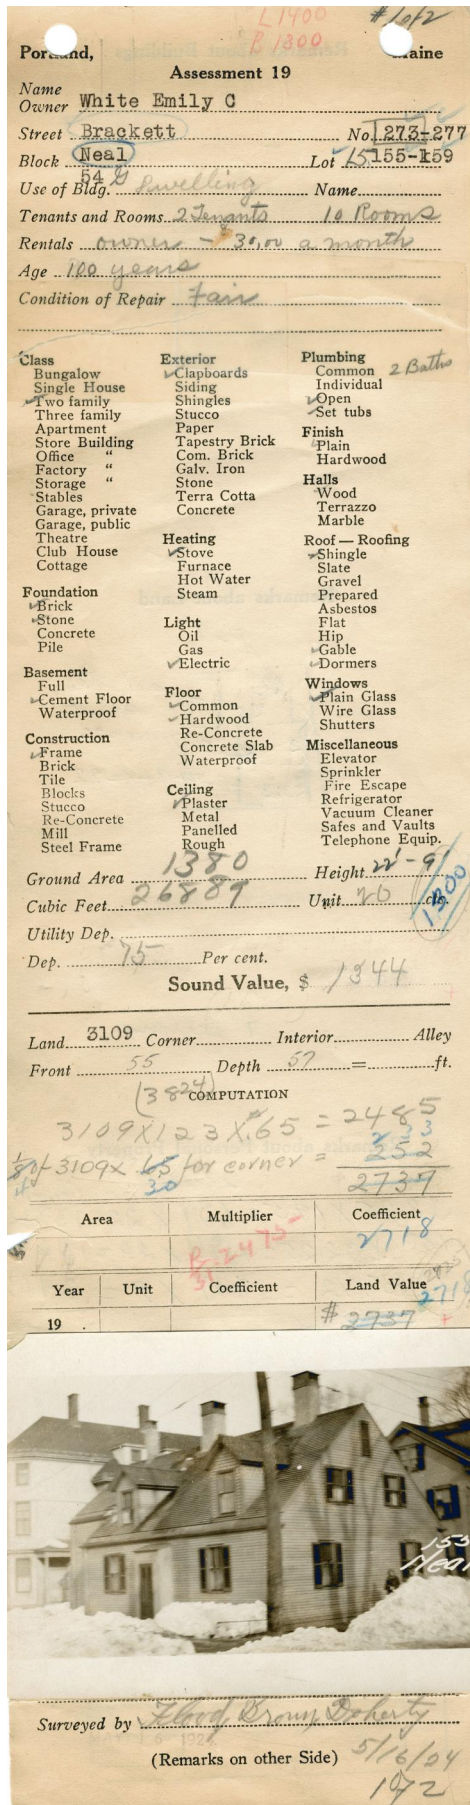 L 1400 # 1 of 2
B 1300
Portland, Maine
Assessment 19
Name
Owner White Emily C
Street Brackett No. 273-277
Block Neal Lot 15 155-159
54 G
Use of Bldg. Dwelling Name
Tenants and Rooms 2 Tenants 10 Rooms
Rentals owner - 30.00 a month
Age 100 years
Condition of Repair Fair
Class
Bungalow
Single House
✓Two family
Three family
Apartment
Store Building
Office "
Factory "
Storage "
Stables
Garage, private
Garage, public
Theatre
Club House
Cottage
Foundation
✓Brick
✓Stone
Concrete
Pile
Basement
Full
✓Cement Floor
Waterproof
Construction
✓Frame
Brick
Tile
Blocks
Stucco
Re-Concrete
Mill
Steel Frame
Exterior
✓Clapboards
Siding
Shingles
Stucco
Paper
Tapestry Brick
Com. Brick
Galv. Iron
Stone
Terra Cotta
Concrete
Heating
✓Stove
Furnace
Hot Water
Steam
Light
Oil
Gas
✓Electric
Floor
✓Common
✓Hardwood
Re-Concrete
Concrete Slab
Waterproof
Ceiling
✓Plaster
Metal
Panelled
Rough
Plumbing
Common 2 Baths
Individual
✓Open
✓Set tubs
Finish
✓Plain
Hardwood
Halls
Wood
Terrazzo
Marble
Roof — Roofing
✓Shingle
Slate
Gravel
Prepared
Asbestos
Flat
Hip
✓Gable
✓Dormers
Windows
✓Plain Glass
Wire Glass
Shutters
Miscellaneous
Elevator
Sprinkler
Fire Escape
Refrigerator
Vacuum Cleaner
Safes and Vaults
Telephone Equip.
Ground Area 1380 Height 22'-9"
Cubic Feet 26889 Unit 20 cts. 1300
Utility Dep.
Dep. 75 Per cent.
Sound Value, $ 1344
Land 3109 Corner Interior Alley
Front 55 Depth 57 = ft.
(3824)
COMPUTATION
3109 X 123 X .65 = 2485
of 3109 x .65 for corner = 252
30 2737
Area Multiplier Coefficient
2718
Year Unit Coefficient Land Value
2718
19 # 2737
155
Neal
Surveyed by Flood Brown Doherty
(Remarks on other Side) 5/16/24
1072